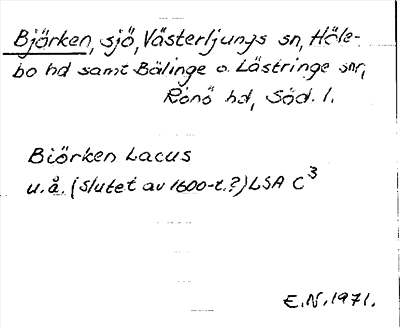 Björken, sjö, Västerljungs sn, Höle-
bo hd samt Bälinge o. Lästringe snr,
Rönö hd, Söd. l.
Biörken Lacus
u.å. (slutet av 1600-t.?) LSA C³
E.N. 1971.